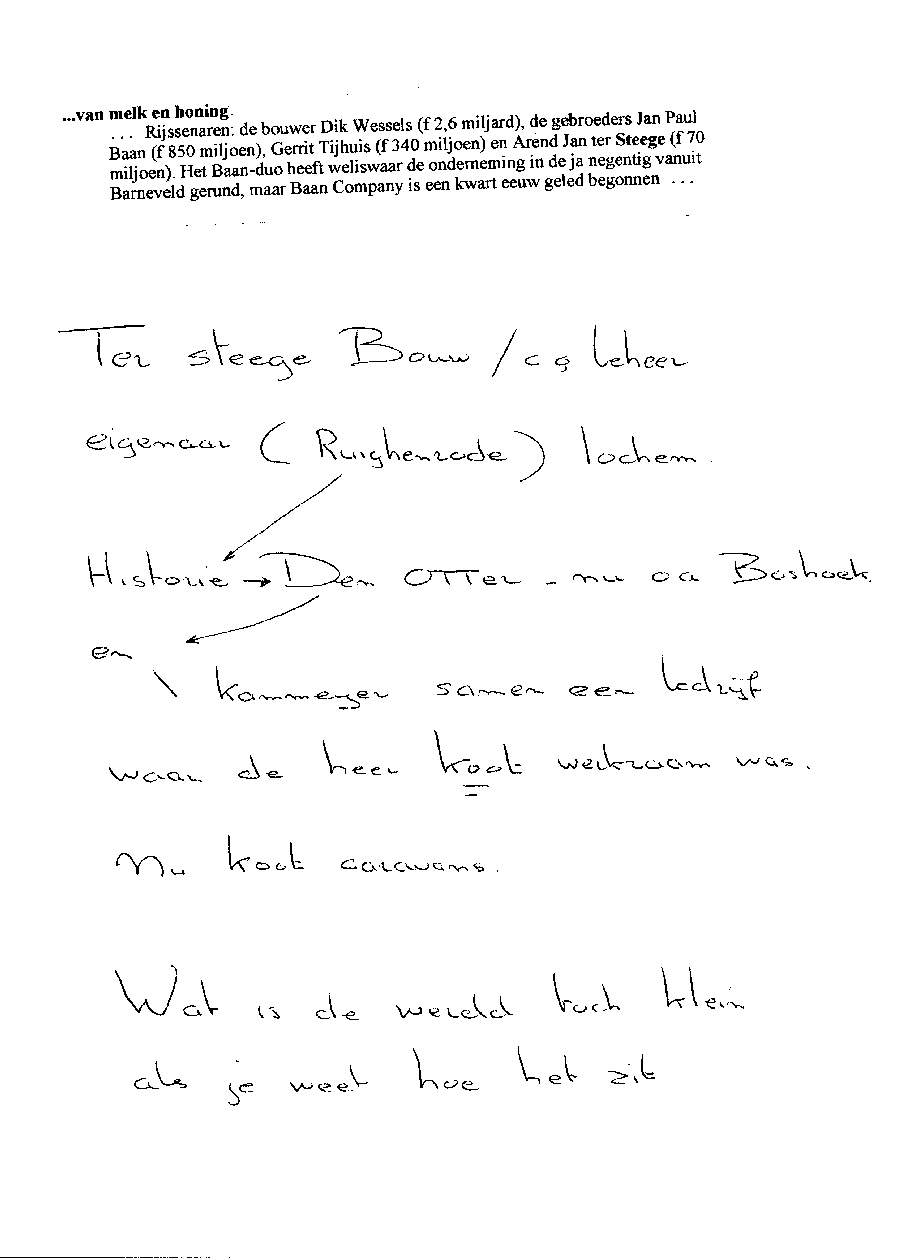 ...van melk en honing.
... Rijssenaren: de bouwer Dik Wessels (f 2,6 miljard), de gebroeders Jan Paul
Baan (f 850 miljoen), Gerrit Tijhuis (f 340 miljoen) en Arend Jan ter Steege (f 70
miljoen). Het Baan-duo heeft weliswaar de onderneming in de ja negentig vanuit
Barneveld gerund, maar Baan Company is een kwart eeuw geled begonnen ...
Ter steege Bouw / c q beheer
eigenaar (Ruighenrode) lochem.
Historie → Den OTTer - nu oa Boshoek.
en
\ kammeyer samen een bedrijf
waar de heer koot werkzaam was.
Nu koot caravans.
Wat is de wereld toch klein
als je weet hoe het zit